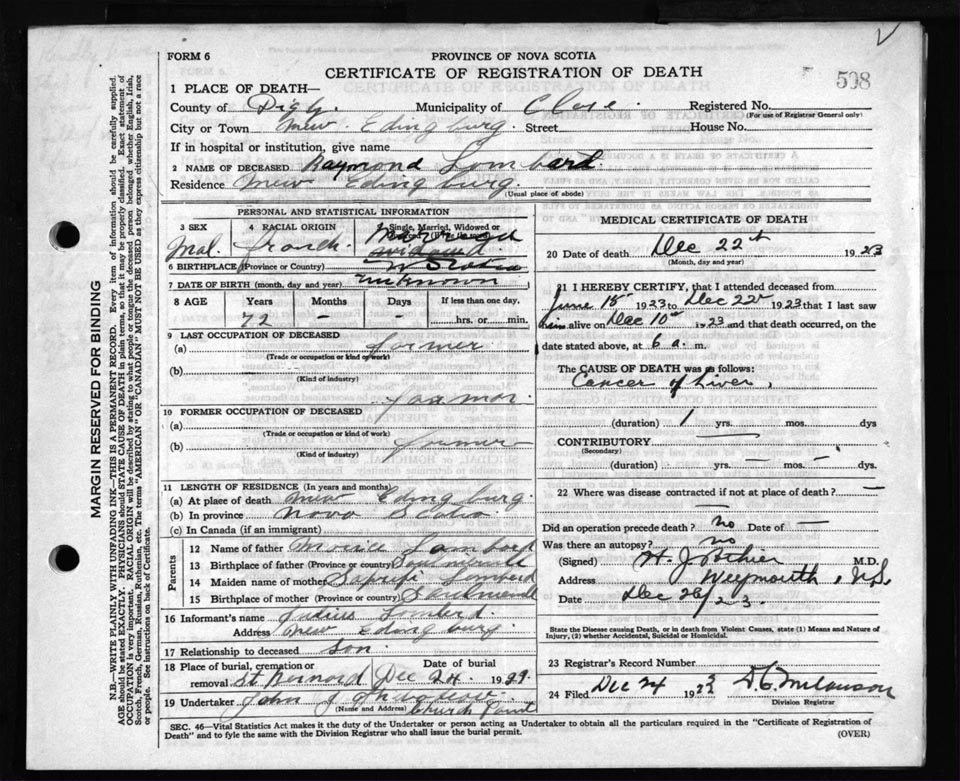 FORM 6
PROVINCE OF NOVA SCOTIA
CERTIFICATE OF REGISTRATION OF DEATH
508
1 PLACE OF DEATH—
County of Digby. Municipality of Clare. Registered No.
(For use of Registrar General only)
City or Town New Edingburg. Street House No.
If in hospital or institution, give name
2 NAME OF DECEASED Raymond Lombard.
Residence New Edingburg.
(Usual place of abode)
PERSONAL AND STATISTICAL INFORMATION
3 SEX 4 RACIAL ORIGIN Single, Married, Widowed or
Mal. Married
6 BIRTHPLACE (Province or Country) N Scotia
7 DATE OF BIRTH (month, day and year) unknown
8 AGE Years Months Days If less than one day,
72 – – hrs. or min.
9 LAST OCCUPATION OF DECEASED
(a) former
(Trade or occupation or kind of work)
(b)
(Kind of industry)
10 FORMER OCCUPATION OF DECEASED
(a)
(Trade or occupation or kind of work)
(b) former
(Kind of industry)
11 LENGTH OF RESIDENCE (In years and months)
(a) At place of death New Edingburg.
(b) In province Nova Scotia
(c) In Canada (if an immigrant)
Parents
12 Name of father Lombard
13 Birthplace of father (Province or country)
14 Maiden name of mother Lombard
15 Birthplace of mother (Province or country)
16 Informant's name Lombard.
Address New Edingburg.
17 Relationship to deceased son
18 Place of burial, cremation or Date of burial
removal St Bernard Dec 24. 19
19 Undertaker John J
(Name and Address) Church Point
MEDICAL CERTIFICATE OF DEATH
20 Date of death Dec 22nd 1923
(Month, day and year)
21 I HEREBY CERTIFY, that I attended deceased from
June 1923 to Dec 22nd 1923 that I last saw
him alive on Dec 10th 1923 and that death occurred, on
date stated above, at 6 a. m.
The CAUSE OF DEATH was as follows:
Cancer of Liver,
(duration) 1 yrs. mos. dys
CONTRIBUTORY
(Secondary)
(duration) — yrs. — mos. — dys.
22 Where was disease contracted if not at place of death? —
Did an operation precede death? no Date of —
Was there an autopsy? no
(Signed) M.D.
Address Weymouth, N.S.
Date Dec 26/23.
State the Disease Causing Death, or in death from Violent Causes, state (1) Means and Nature of
Injury, (2) whether Accidental, Suicidal or Homicidal.
23 Registrar's Record Number
24 Filed Dec 24 1923
Division Registrar
SEC. 46—Vital Statistics Act makes it the duty of the Undertaker or person acting as Undertaker to obtain all the particulars required in the "Certificate of Registration of
Death" and to fyle the same with the Division Registrar who shall issue the burial permit.
(OVER)
MARGIN RESERVED FOR BINDING
N.B.—WRITE PLAINLY WITH UNFADING INK—THIS IS A PERMANENT RECORD. Every item of information should be carefully supplied.
AGE should be stated EXACTLY. PHYSICIANS should STATE CAUSE OF DEATH in plain terms, so that it may be properly classified. Exact statement of
OCCUPATION is very important. RACIAL ORIGIN will be described by stating to what people or tongue the deceased person belonged whether English, Irish,
Scotch, French, German, Russian, Ruthenian, etc. The terms "AMERICAN" OR "CANADIAN" MUST NOT BE USED as they express citizenship but not a race
or people. See instructions on back of Certificate.